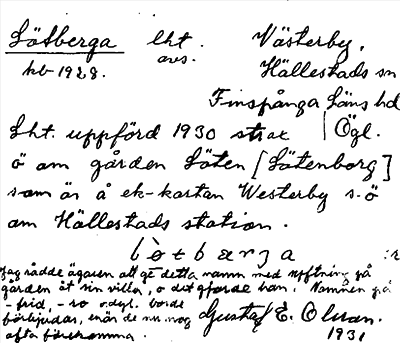 Sätberga lht. Västerby,
avs.
kb 1928. Hällestads sn
Finspånga Läns hd
Lht. uppförd 1930 strax Ögl.
ö om gården Säten [Sätenborg]
som är å ek-kartan Westerby s.ö
om Hällestads station.
Jag rådde ägaren att ge detta namn med syftning på
gården åt sin villa, o det gjorde han. Namnen på
- frid, - ro o.dyl. borde
förbjudas, enär de nu nog Gustaf E. Olsson.
ofta förekomma. 1931